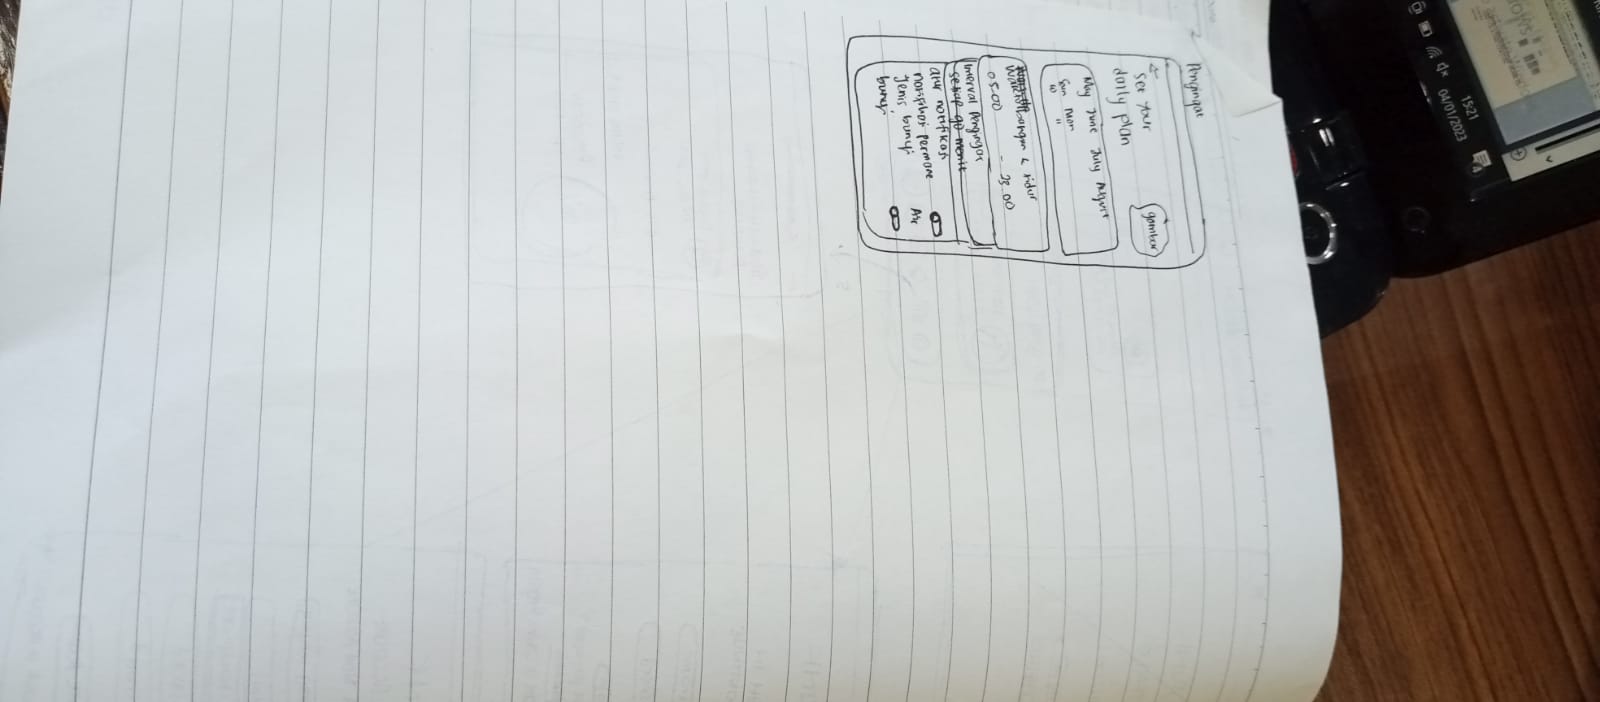 Pengingat
←
Set Your
daily plan
gambar
May June July August
Sun Mon
10 11
bangun & tidur
05.00 - 23.00
Interval Pengingat
setiap 90 menit
atur notifikasi
notifikasi permane
Jenis bunyi
bunyi
15:21
04/01/2023
4